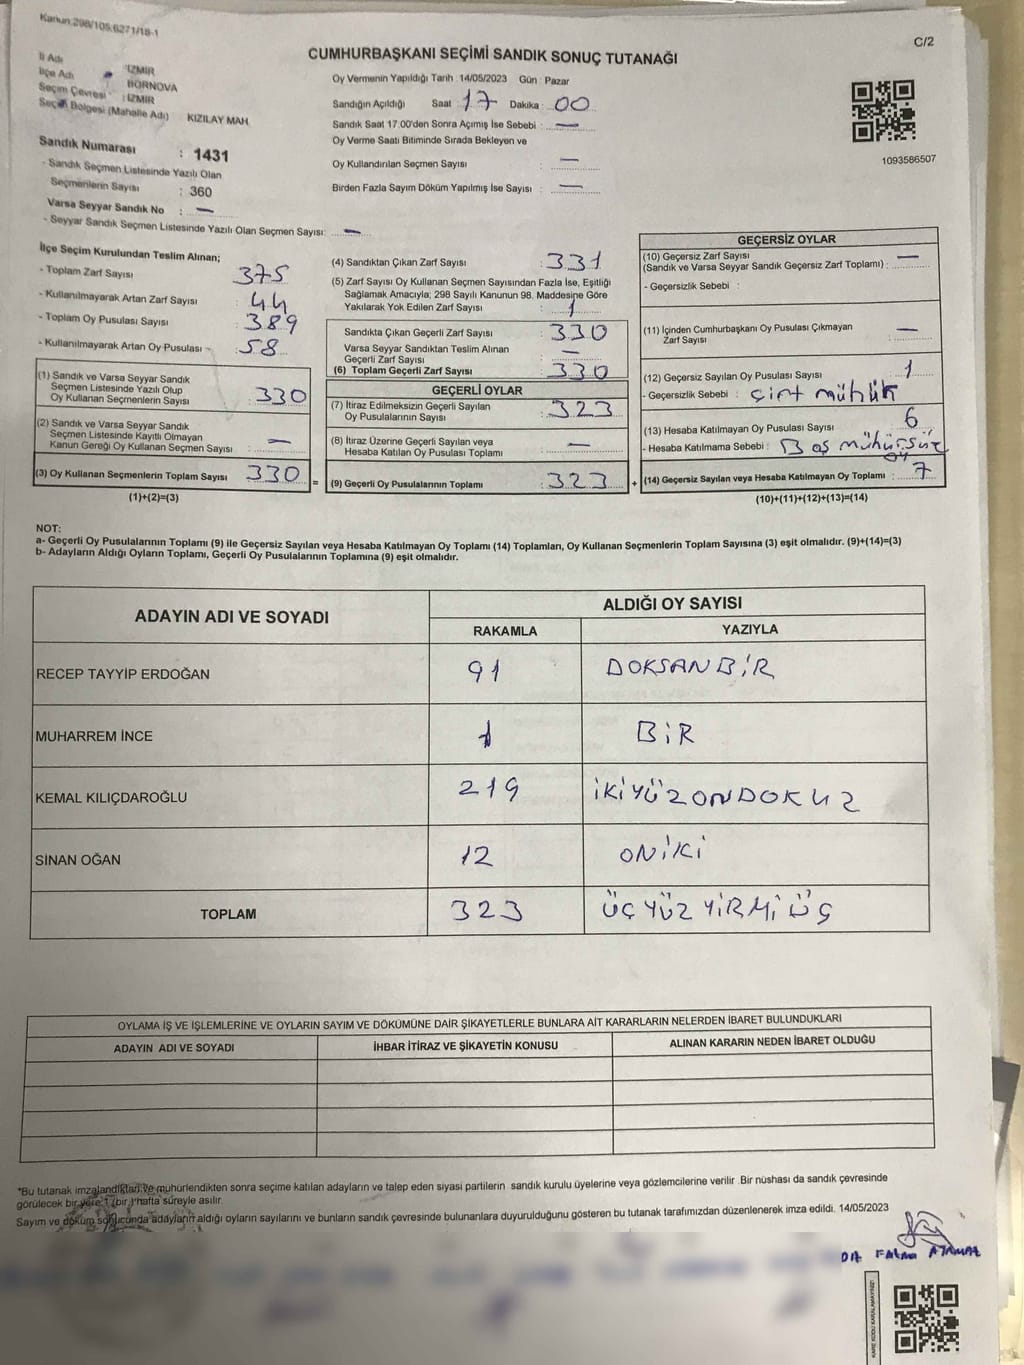 Kanun:298/105,6271/18-1
C/2
CUMHURBAŞKANI SEÇİMİ SANDIK SONUÇ TUTANAĞI
İl Adı : İZMİR
İlçe Adı BORNOVA
Seçim Çevresi : İZMİR
Seçim Bölgesi (Mahalle Adı) KIZILAY MAH.
Sandık Numarası : 1431
- Sandık Seçmen Listesinde Yazılı Olan
Seçmenlerin Sayısı : 360
Varsa Seyyar Sandık No : —
- Seyyar Sandık Seçmen Listesinde Yazılı Olan Seçmen Sayısı: —
Oy Vermenin Yapıldığı Tarih :14/05/2023 Gün : Pazar
Sandığın Açıldığı Saat : 17 Dakika : 00
Sandık Saat 17.00'den Sonra Açılmış İse Sebebi : —
Oy Verme Saati Bitiminde Sırada Bekleyen ve
Oy Kullandırılan Seçmen Sayısı : —
Birden Fazla Sayım Döküm Yapılmış İse Sayısı : —
1093586507
İlçe Seçim Kurulundan Teslim Alınan;
- Toplam Zarf Sayısı : 375
- Kullanılmayarak Artan Zarf Sayısı : 44
- Toplam Oy Pusulası Sayısı : 389
- Kullanılmayarak Artan Oy Pusulası : 58
(1) Sandık ve Varsa Seyyar Sandık
Seçmen Listesinde Yazılı Olup
Oy Kullanan Seçmenlerin Sayısı : 330
(2) Sandık ve Varsa Seyyar Sandık
Seçmen Listesinde Kayıtlı Olmayan
Kanun Gereği Oy Kullanan Seçmen Sayısı : —
(3) Oy Kullanan Seçmenlerin Toplam Sayısı : 330
(1)+(2)=(3)
(4) Sandıktan Çıkan Zarf Sayısı : 331
(5) Zarf Sayısı Oy Kullanan Seçmen Sayısından Fazla İse, Eşitliği
Sağlamak Amacıyla; 298 Sayılı Kanunun 98. Maddesine Göre
Yakılarak Yok Edilen Zarf Sayısı : 1
Sandıkta Çıkan Geçerli Zarf Sayısı : 330
Varsa Seyyar Sandıktan Teslim Alınan
Geçerli Zarf Sayısı : —
(6) Toplam Geçerli Zarf Sayısı : 330
GEÇERLİ OYLAR
(7) İtiraz Edilmeksizin Geçerli Sayılan
Oy Pusulalarının Sayısı : 323
(8) İtiraz Üzerine Geçerli Sayılan veya
Hesaba Katılan Oy Pusulası Toplamı : —
= (9) Geçerli Oy Pusulalarının Toplamı : 323
GEÇERSİZ OYLAR
(10) Geçersiz Zarf Sayısı
(Sandık ve Varsa Seyyar Sandık Geçersiz Zarf Toplamı) : —
- Geçersizlik Sebebi :
(11) İçinden Cumhurbaşkanı Oy Pusulası Çıkmayan
Zarf Sayısı : —
(12) Geçersiz Sayılan Oy Pusulası Sayısı : 1
- Geçersizlik Sebebi : Çift
(13) Hesaba Katılmayan Oy Pusulası Sayısı : 6
- Hesaba Katılmama Sebebi : Boş mühürsüz
OY
+ (14) Geçersiz Sayılan veya Hesaba Katılmayan Oy Toplamı : 7
(10)+(11)+(12)+(13)=(14)
NOT:
a- Geçerli Oy Pusulalarının Toplamı (9) ile Geçersiz Sayılan veya Hesaba Katılmayan Oy Toplamı (14) Toplamları, Oy Kullanan Seçmenlerin Toplam Sayısına (3) eşit olmalıdır. (9)+(14)=(3)
b- Adayların Aldığı Oyların Toplamı, Geçerli Oy Pusulalarının Toplamına (9) eşit olmalıdır.
ADAYIN ADI VE SOYADI ALDIĞI OY SAYISI
RAKAMLA YAZIYLA
RECEP TAYYİP ERDOĞAN 91 DOKSANBİR
MUHARREM İNCE 1 BİR
KEMAL KILIÇDAROĞLU 219 İKİYÜZONDOKUZ
SİNAN OĞAN 12 ONİKİ
TOPLAM 323 ÜÇYÜZYİRMİÜÇ
OYLAMA İŞ VE İŞLEMLERİNE VE OYLARIN SAYIM VE DÖKÜMÜNE DAİR ŞİKAYETLERLE BUNLARA AİT KARARLARIN NELERDEN İBARET BULUNDUKLARI
ADAYIN ADI VE SOYADI İHBAR İTİRAZ VE ŞİKAYETİN KONUSU ALINAN KARARIN NEDEN İBARET OLDUĞU
*Bu tutanak imzalandıktan ve mühürlendikten sonra seçime katılan adayların ve talep eden siyasi partilerin sandık kurulu üyelerine veya gözlemcilerine verilir. Bir nüshası da sandık çevresinde
görülecek bir yere 1 (bir ) hafta süreyle asılır.
Sayım ve döküm sonucunda adayların aldığı oyların sayılarını ve bunların sandık çevresinde bulunanlara duyurulduğunu gösteren bu tutanak tarafımızdan düzenlenerek imza edildi. 14/05/2023
FATMA
KARE KODU KARALAMAYINIZ!